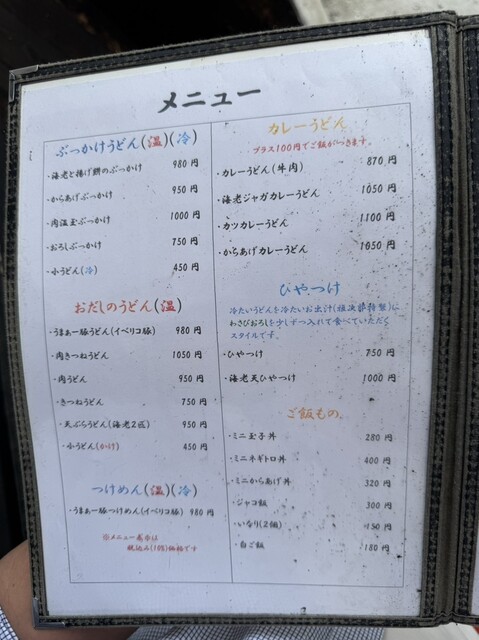 メニュー
ぶっかけうどん(温)(冷)
・海老と揚げ餅のぶっかけ 980円
・からあげぶっかけ 950円
・肉温玉ぶっかけ 1000円
・おろしぶっかけ 750円
・小うどん(冷) 450円
おだしのうどん(温)
・うまぁー豚うどん(イベリコ豚) 980円
・肉きつねうどん 1050円
・肉うどん 950円
・きつねうどん 750円
・天ぷらうどん(海老2匹) 950円
・小うどん(かけ) 450円
つけめん(温)(冷)
・うまぁー豚つけめん(イベリコ豚) 980円
※メニュー表示は
税込み(10%)価格です
カレーうどん
プラス100円でご飯がつきます。
・カレーうどん(牛肉) 870円
・海老ジャガカレーうどん 1050円
・カツカレーうどん 1100円
・からあげカレーうどん 1050円
ひやつけ
冷たいうどんを冷たいお出汁(雄次郎特製)に
わさびおろしを少しずつ入れて食べていただく
スタイルです。
・ひやつけ 750円
・海老天ひやつけ 1000円
ご飯もの
・ミニ玉子丼 280円
・ミニネギトロ丼 400円
・ミニからあげ丼 320円
・ジャコ飯 300円
・いなり(2個) 150円
・白ご飯 180円